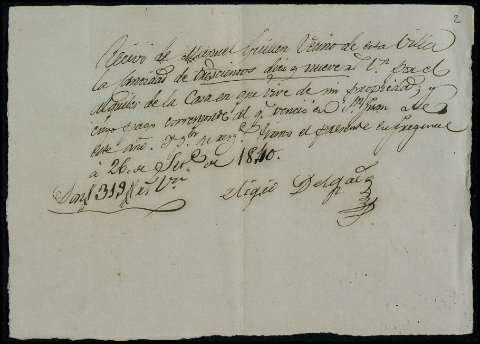 2
Recivi de Manuel Guillen Vecino de esta Villa
la cantidad de trescientos diez y nueve rs. Vn. por el
Alquiler de la Casa en que vive de mi propiedad; y
cuyo pago corresponde al qe. vencio en Sn. Juan de
este año. firmo el presente en Fregenal
á 26. de de 1840.
Son 319 rs. Vn.
Delgado